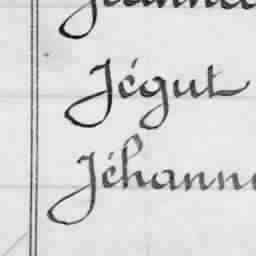 Jégut
Jéhanno